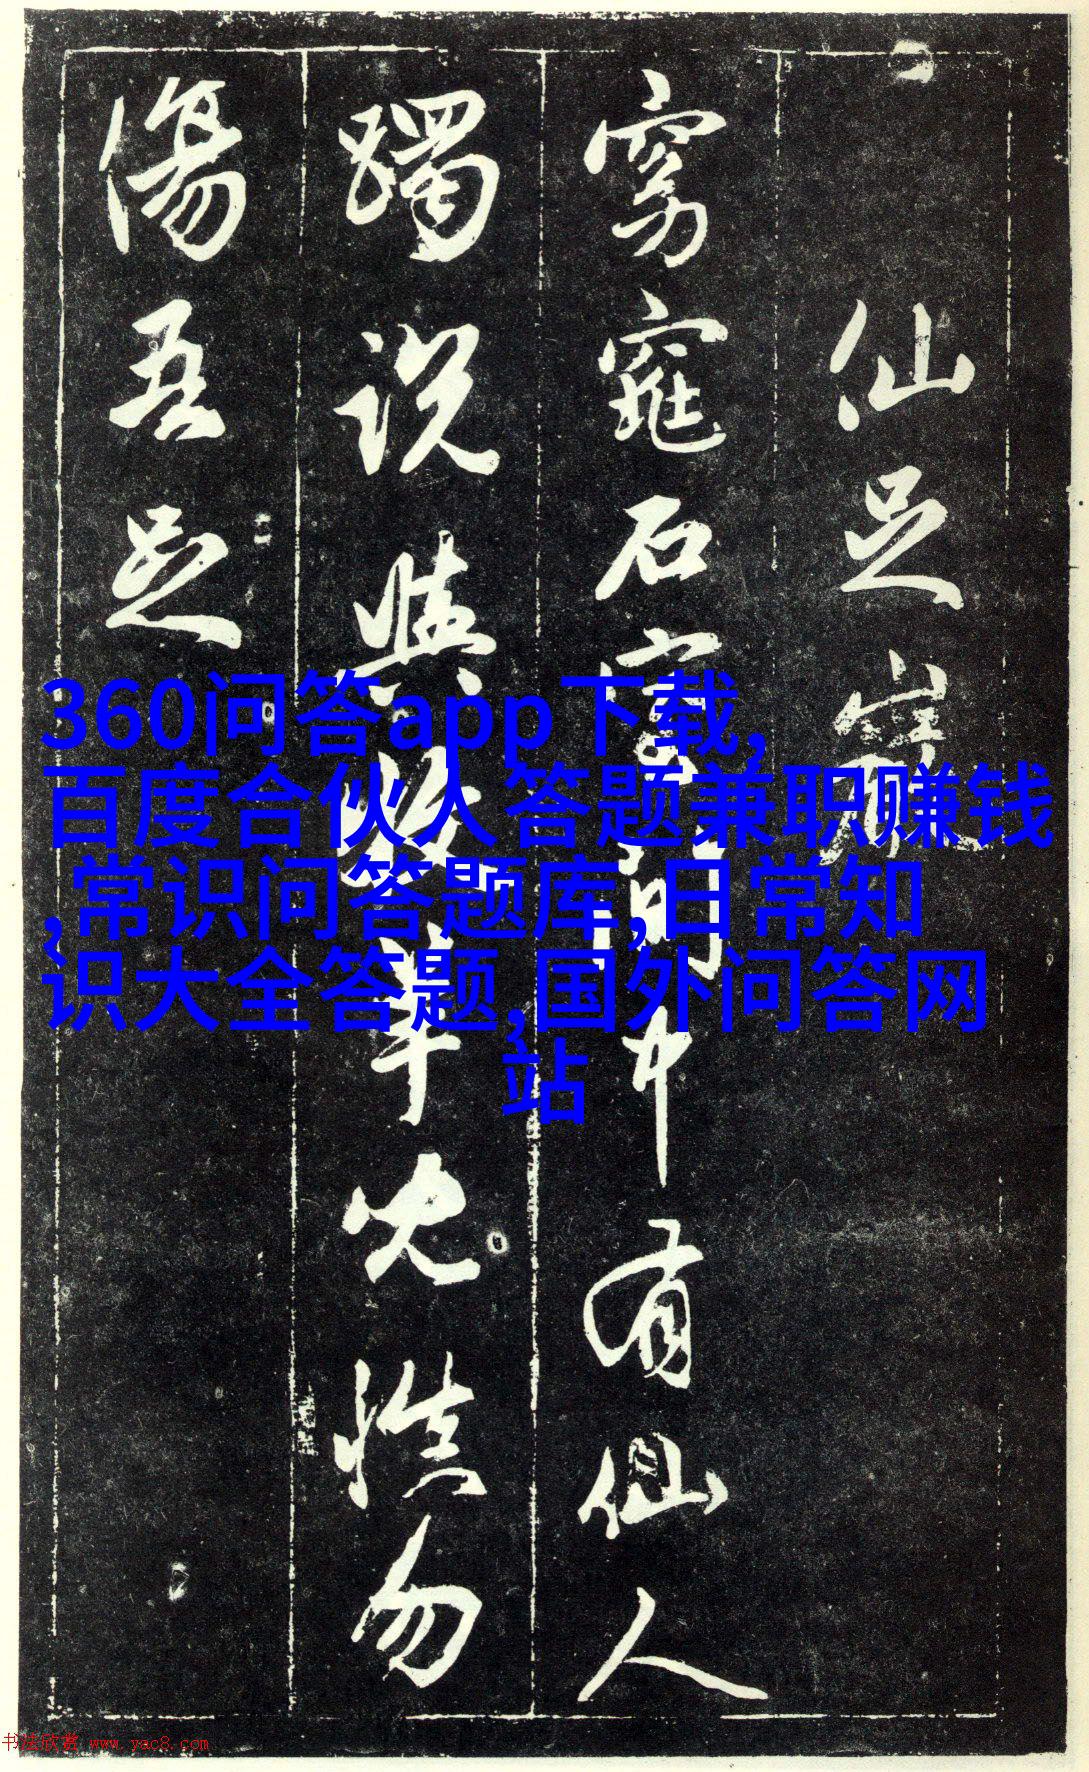 仙足
窈窕石室間中有仙人
躅説與牧羊兒慎勿
傷吾足
360问答app下载,
百度合伙人答题兼职赚钱
,常识问答题库,日常知
识大全答题,国外问答网
站
书法欣赏 www.yac8.com